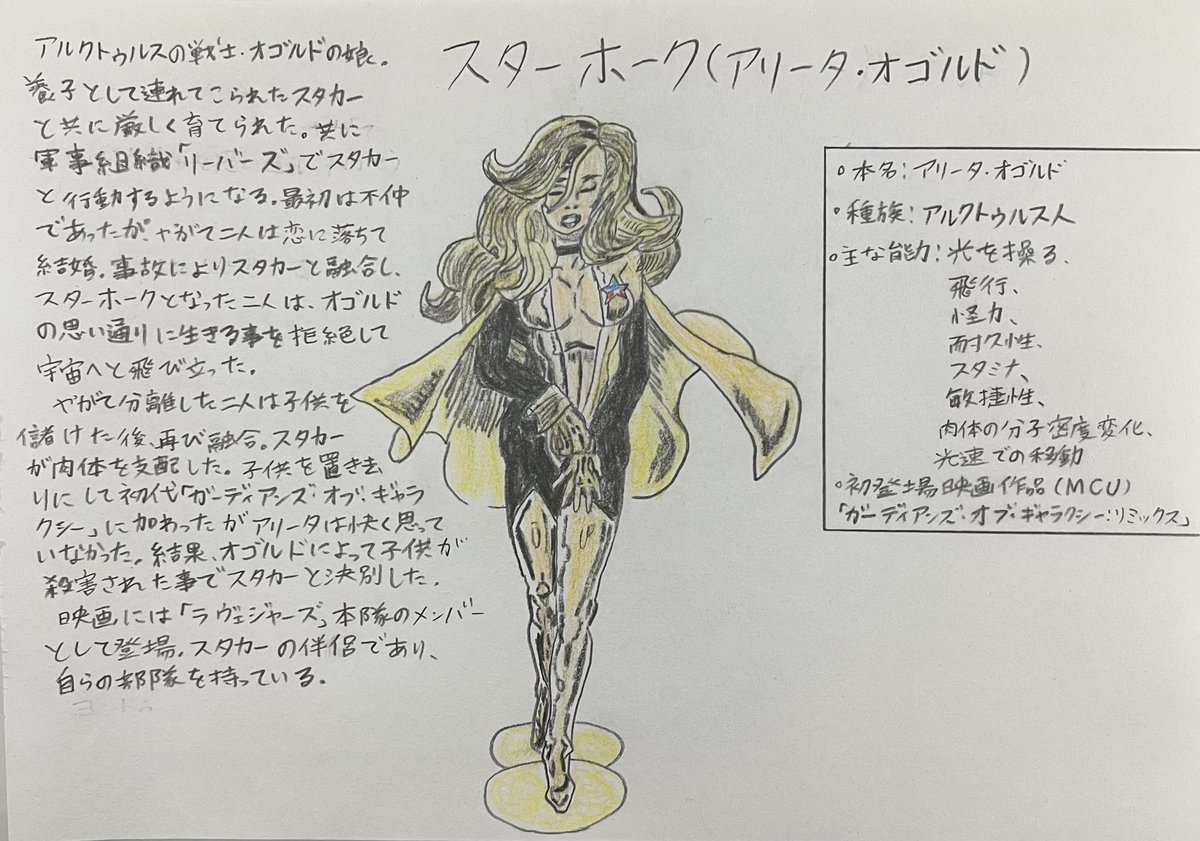 スターホーク(アリータ・オゴルド)
アルクトゥルスの戦士・オゴルドの娘。
養子として連れてこられたスタカー
と共に厳しく育てられた。共に
軍事組織「リーバーズ」でスタカー
と行動するようになる。最初は不仲
であったが、やがて二人は恋に落ちて
結婚。事故によりスタカーと融合し、
スターホークとなった二人は、オゴルド
の思い通りに生きる事を拒絶して
宇宙へと飛び立った。
やがて分離した二人は子供を
儲けた後、再び融合。スタカー
が肉体を支配した。子供を置き去
りにして初代「ガーディアンズ・オブ・ギャラ
クシー」に加わったがアリータは快く思って
いなかった。結果、オゴルドによって子供が
殺害された事でスタカーと決別した。
映画には「ラヴェジャーズ」本隊のメンバー
として登場。スタカーの伴侶であり、
自らの部隊を持っている。
○本名:アリータ・オゴルド
○種族:アルクトゥルス人
○主な能力:光を操る、
飛行、
怪力、
耐久性、
スタミナ、
敏捷性、
肉体の分子密度変化、
光速での移動
○初登場映画作品(MCU)
「ガーディアンズ・オブ・ギャラクシー:リミックス」